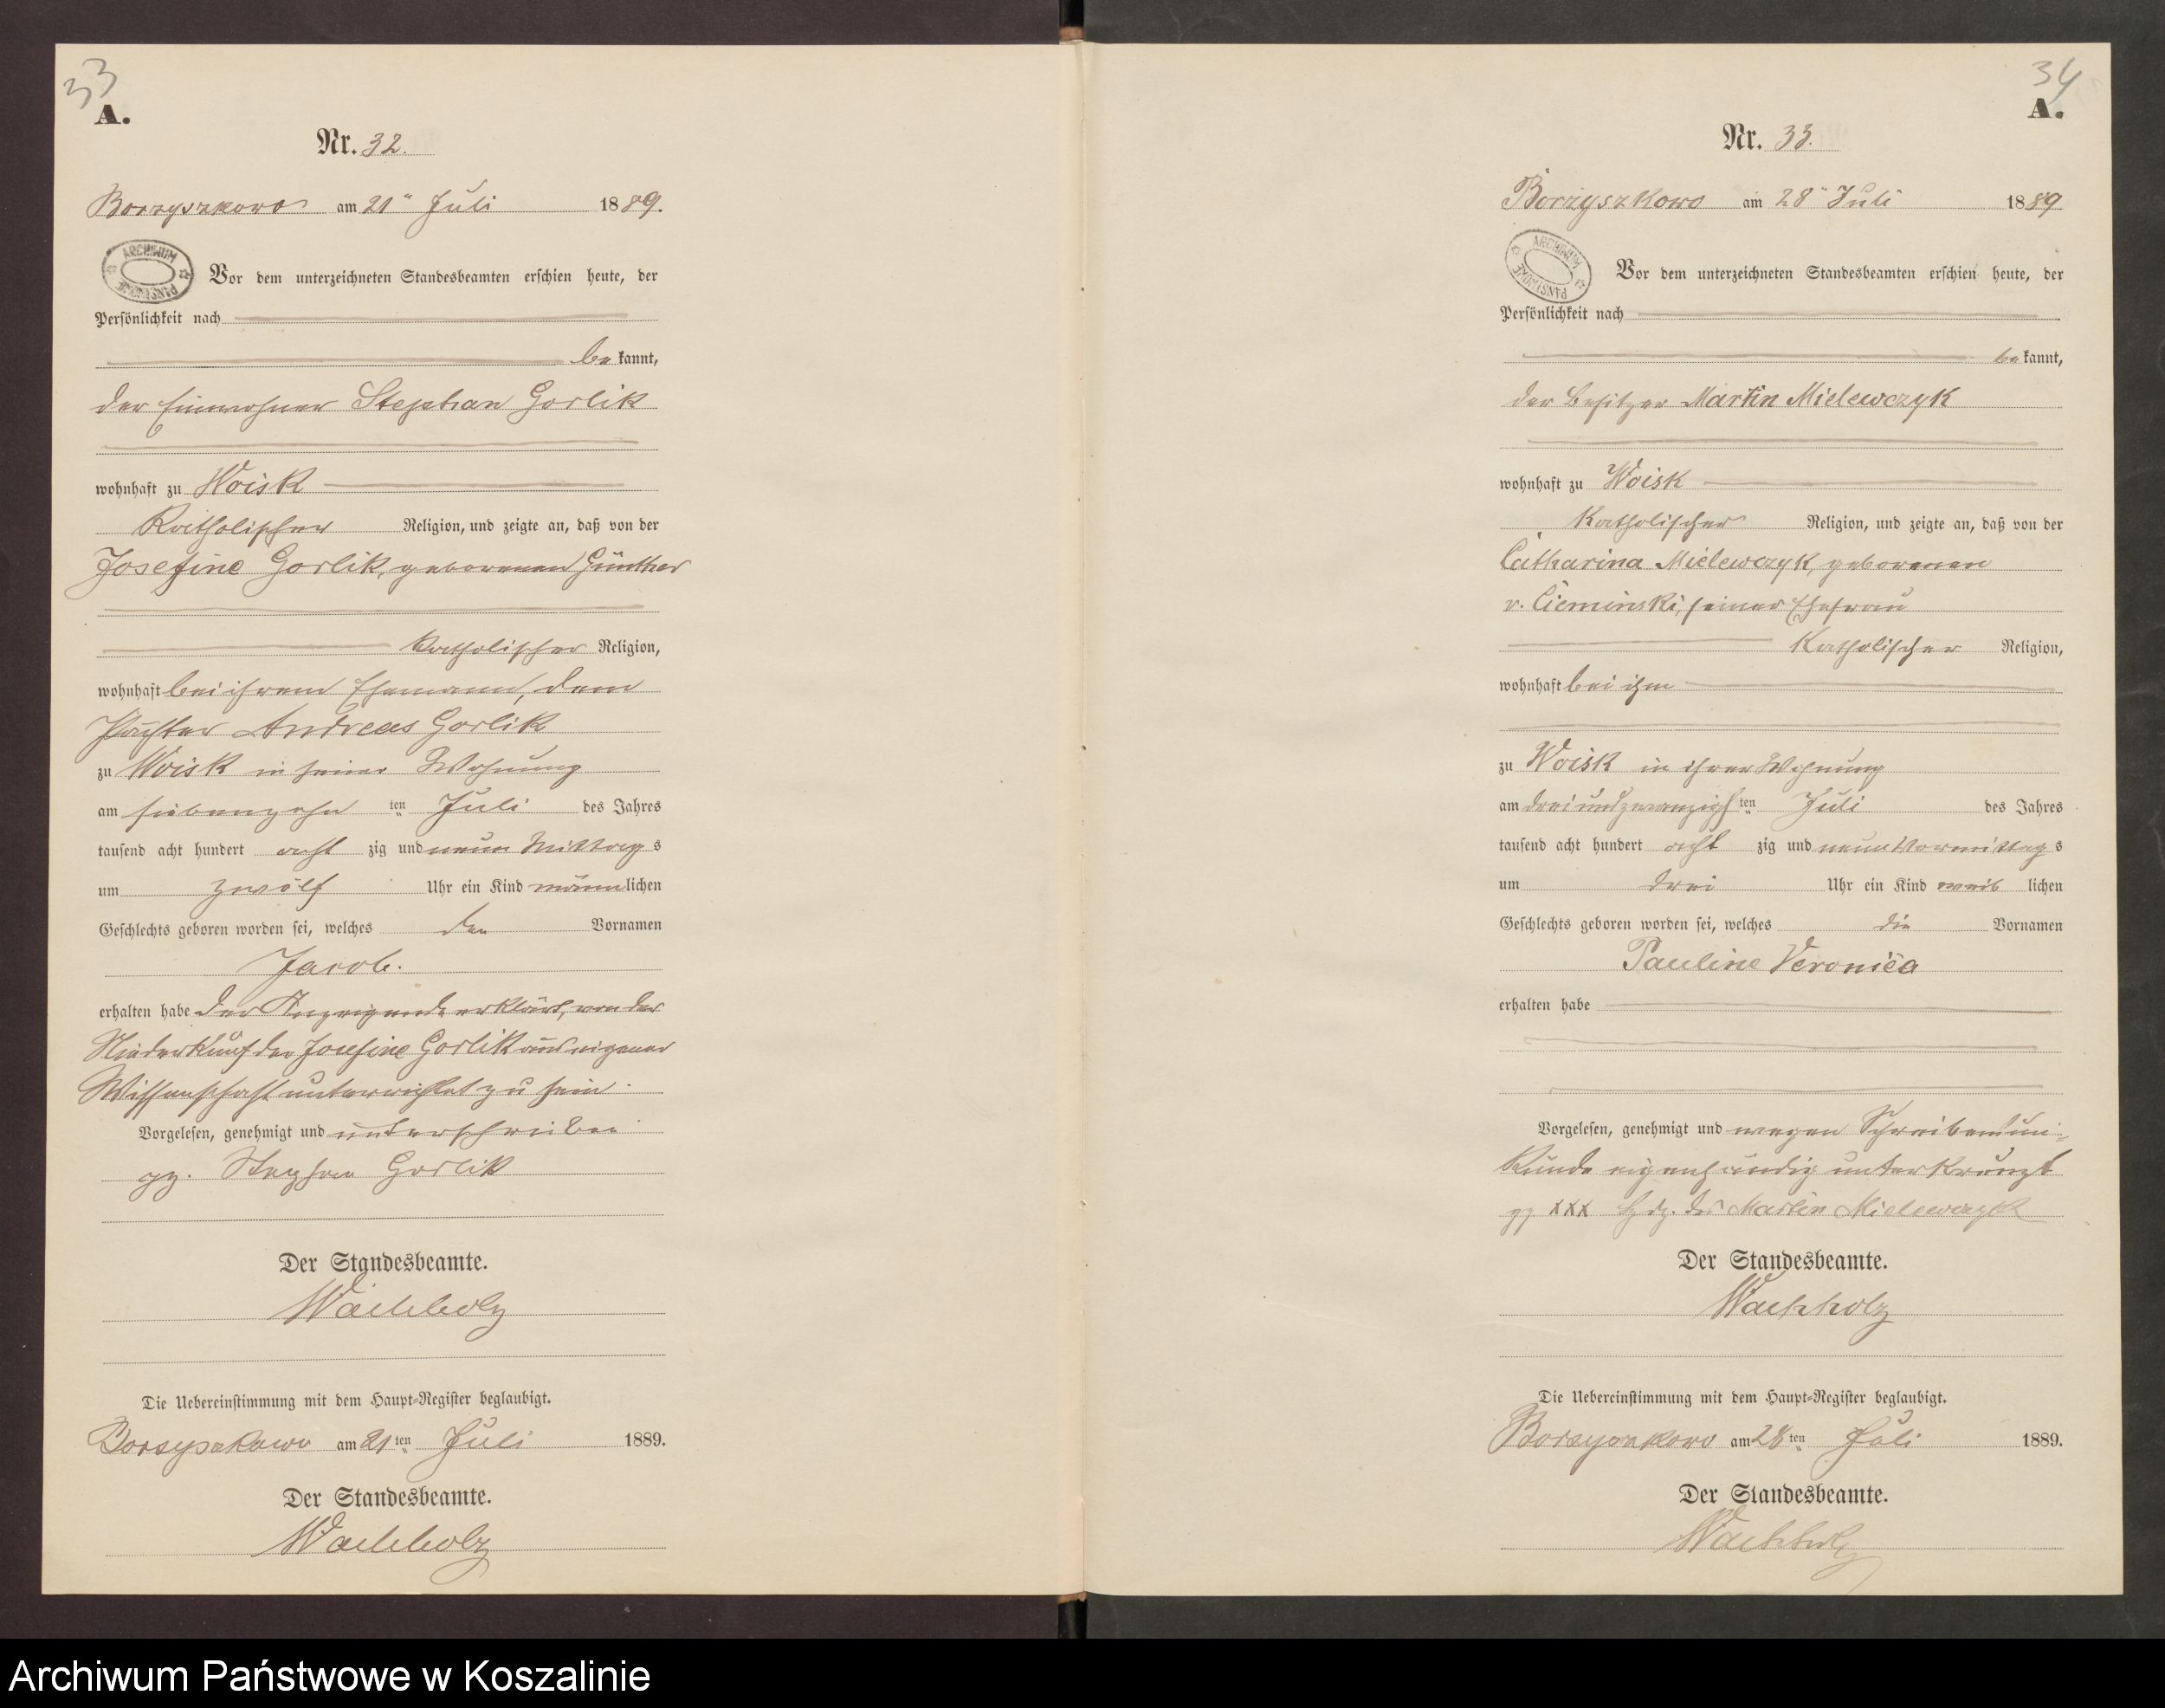 33
A.
Nr. 32.
Borzyszkowo am 21ⁿ Juli 1889.
ARCHIWUM PAŃSTWOWE
Vor dem unterzeichneten Standesbeamten erschien heute, der
Persönlichkeit nach
bekannt,
der Einwohner Stephan Gorlik
wohnhaft zu Woisk
Katholischer Religion, und zeigte an, daß von der
Josefine Gorlik, geborenen Günther
Katholischer Religion,
wohnhaft bei ihrem Ehemann, dem
Pächter Andreas Gorlik
zu Woisk in seiner Wohnung
am siebenzehnten Juli des Jahres
tausend acht hundert achtzig und neun Mittags
um zwölf Uhr ein Kind männlichen
Geschlechts geboren worden sei, welches den Vornamen
Jacob.
erhalten habe der Anzeigende erklärt, von der
Niederkunft der Josefine Gorlik aus eigener
Wissenschaft unterrichtet zu sein.
Vorgelesen, genehmigt und unterschrieben
gz. Stephan Gorlik
Der Standesbeamte.
Wachholz
Die Uebereinstimmung mit dem Haupt-Register beglaubigt.
Borzyszkowo am 21ten Juli 1889.
Der Standesbeamte.
Wachholz
34
A.
Nr. 33.
Borzyszkowo am 28ⁿ Juli 1889
ARCHIWUM PAŃSTWOWE
Vor dem unterzeichneten Standesbeamten erschien heute, der
Persönlichkeit nach
bekannt,
der Besitzer Martin Mielewczyk
wohnhaft zu Woisk
Katholischer Religion, und zeigte an, daß von der
Catharina Mielewczyk, geborenen
v. Cieminski, seiner Ehefrau
Katholischer Religion,
wohnhaft bei ihm
zu Woisk in ihrer Wohnung
am dreiundzwanzigsten Juli des Jahres
tausend acht hundert achtzig und neun Vormittags
um drei Uhr ein Kind weiblichen
Geschlechts geboren worden sei, welches die Vornamen
Pauline Veronica
erhalten habe
Vorgelesen, genehmigt und wegen Schreibensun-
kunde eigenhändig unterkreuzt
gz XXX Hdz. des Martin Mielewczyk
Der Standesbeamte.
Wachholz
Die Uebereinstimmung mit dem Haupt-Register beglaubigt.
Borzyszkowo am 28ten Juli 1889.
Der Standesbeamte.
Wachholz
Archiwum Państwowe w Koszalinie